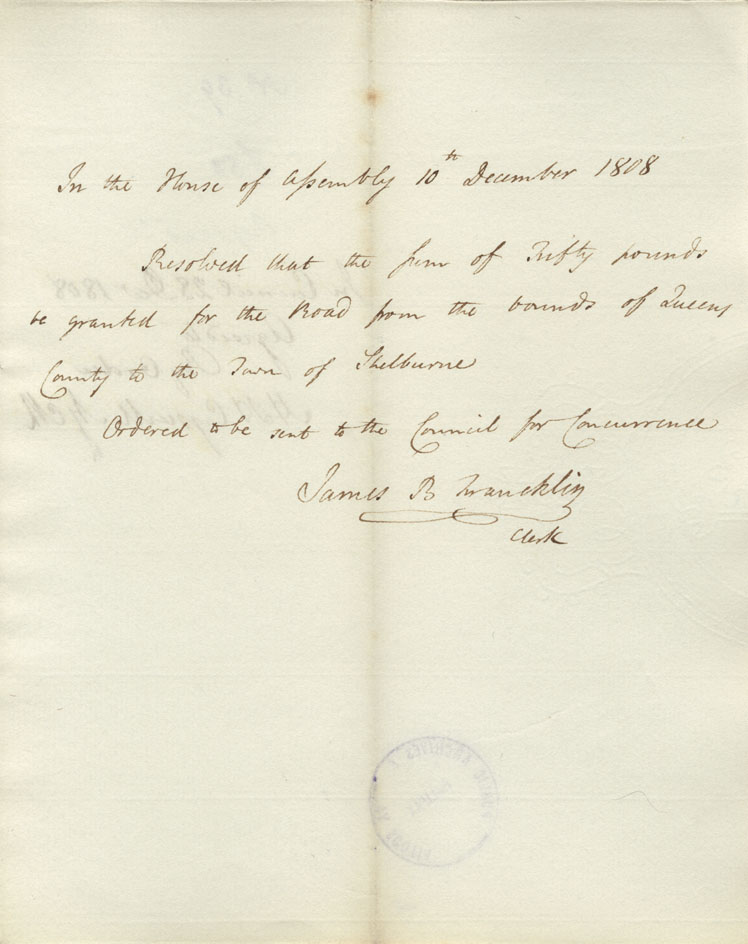 In the House of Assembly 10th December 1808
Resolved that the sum of Fifty pounds
be granted for the Road from the bounds of Queens
County to the Town of Shelburne
Ordered to be sent to the Council for Concurrence
James B Francklin
Clerk